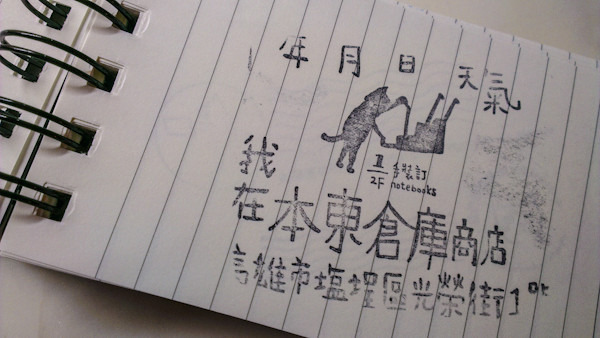 年 月 日 天氣
2F 手裝訂
notebooks
我
在本東倉庫商店
高雄市塩埕區光榮街1